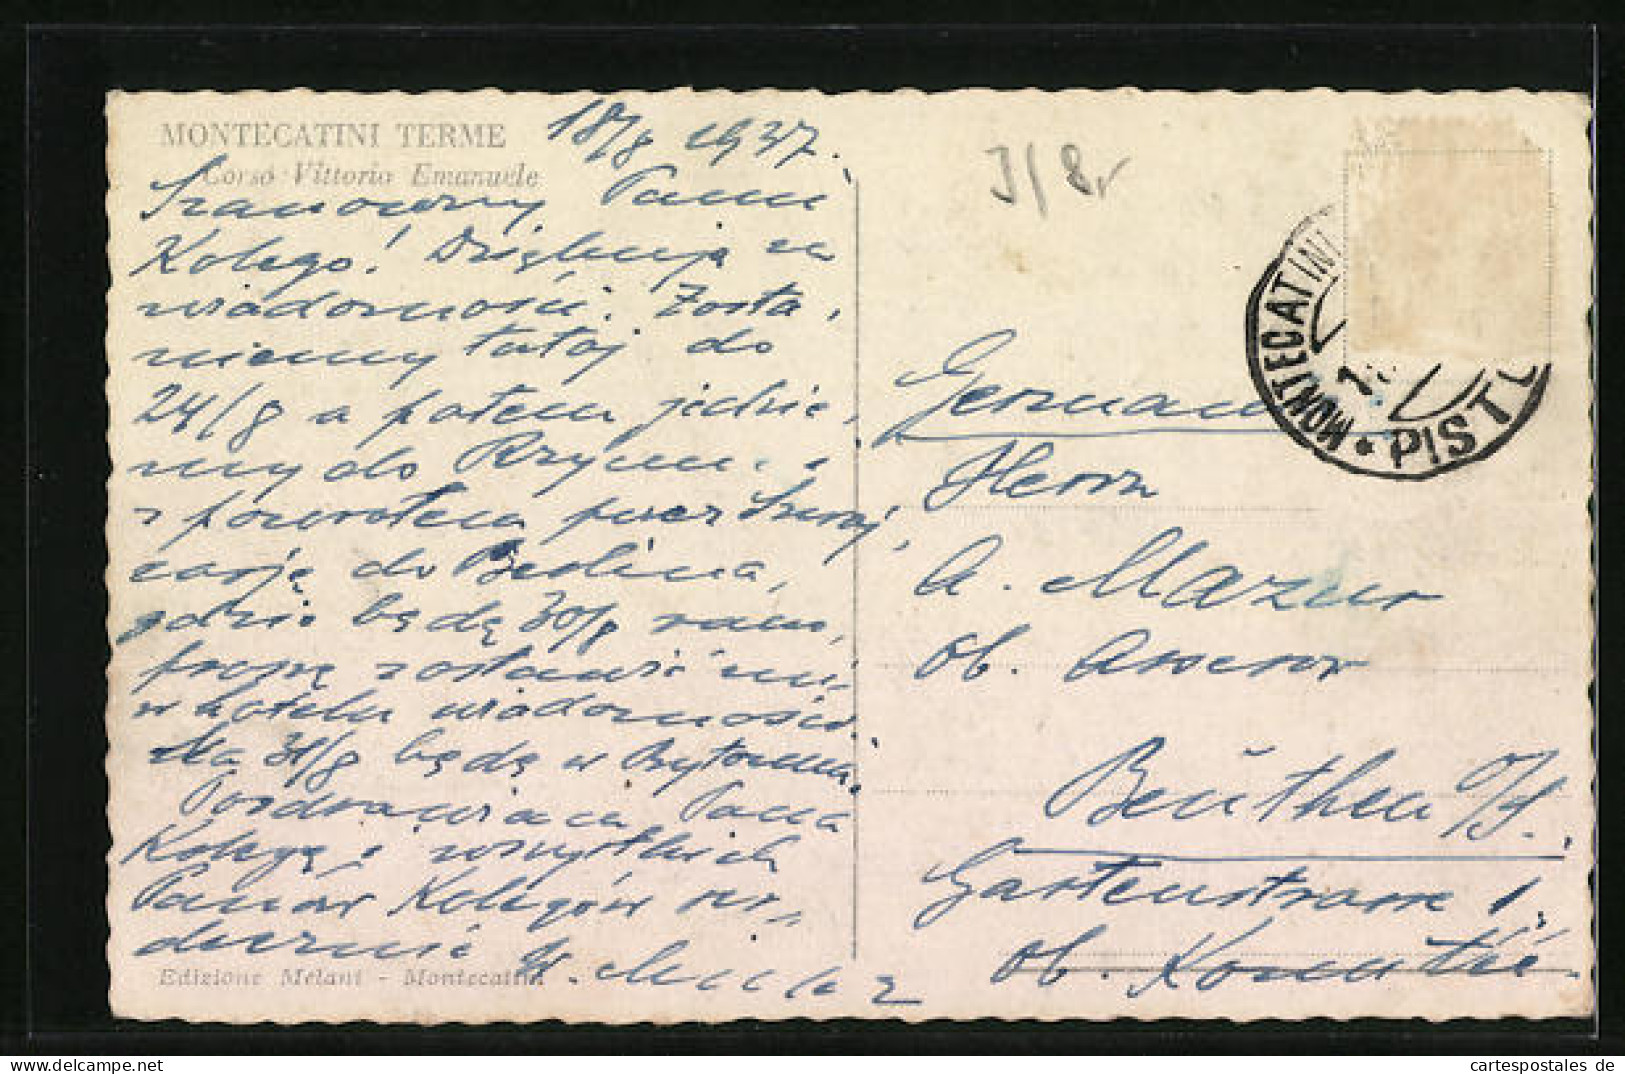 MONTECATINI TERME
Corso Vittorio Emanuele
18/8 1937.
Szanowny Panie
Kolego! Dziękuję za
wiadomości. Zosta,
niemy tutaj do
24/8 a potem jedzie,
my do Rzymu.
z powrotem przez Szwaj,
carję do Berlina,
gdzie będę 30/8 rano,
proszę zostawić mi
w hotelu wiadomości.
Na 31/8 będę w Bytomiu.
Pozdrawiam Pana
Kolegę i wszystkich
Panów Kolegów ser,
decznie
Edizione Melani - Montecatini
J/8,
MONTECATINI
PIST
Germania
Herrn
A. Mazur
ob. Assessor
Beuthen O/S.
Gartenstrasse 1,
ob.
cartespostales de